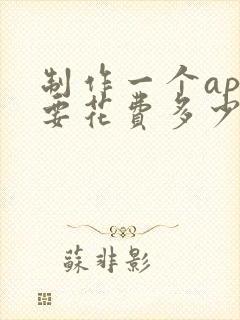 制作一个ap
要花费多少
蘇非影